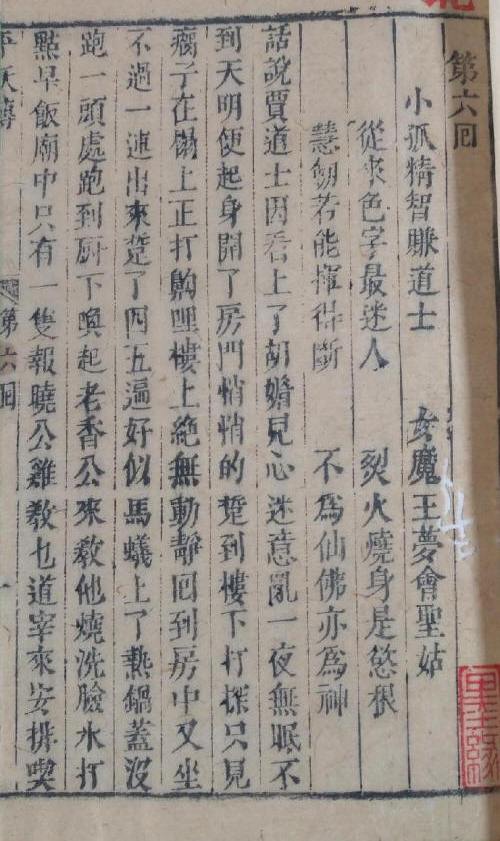 第六回
小狐精智賺道士　女魔王夢會聖姑
從來色字最迷人　烈火燒身是慾根
慧劒若能揮得斷　不爲仙佛亦爲神
話說賈道士因看上了胡媚兒心迷意亂一夜無眠不
到天明便起身開了房門悄悄的踅到樓下打探只見
瘸子在櫈上正打齁哩樓上絕無動靜囘到房中又坐
不過一連出來踅了四五遍好似馬蟻上了熱鍋蓋沒
跑一頭處跑到厨下喚起老香公來教他燒洗臉水打
點早飯廟中只有一隻報曉公雞教乜道宰來安排喫
平妖傳
第六囘
一